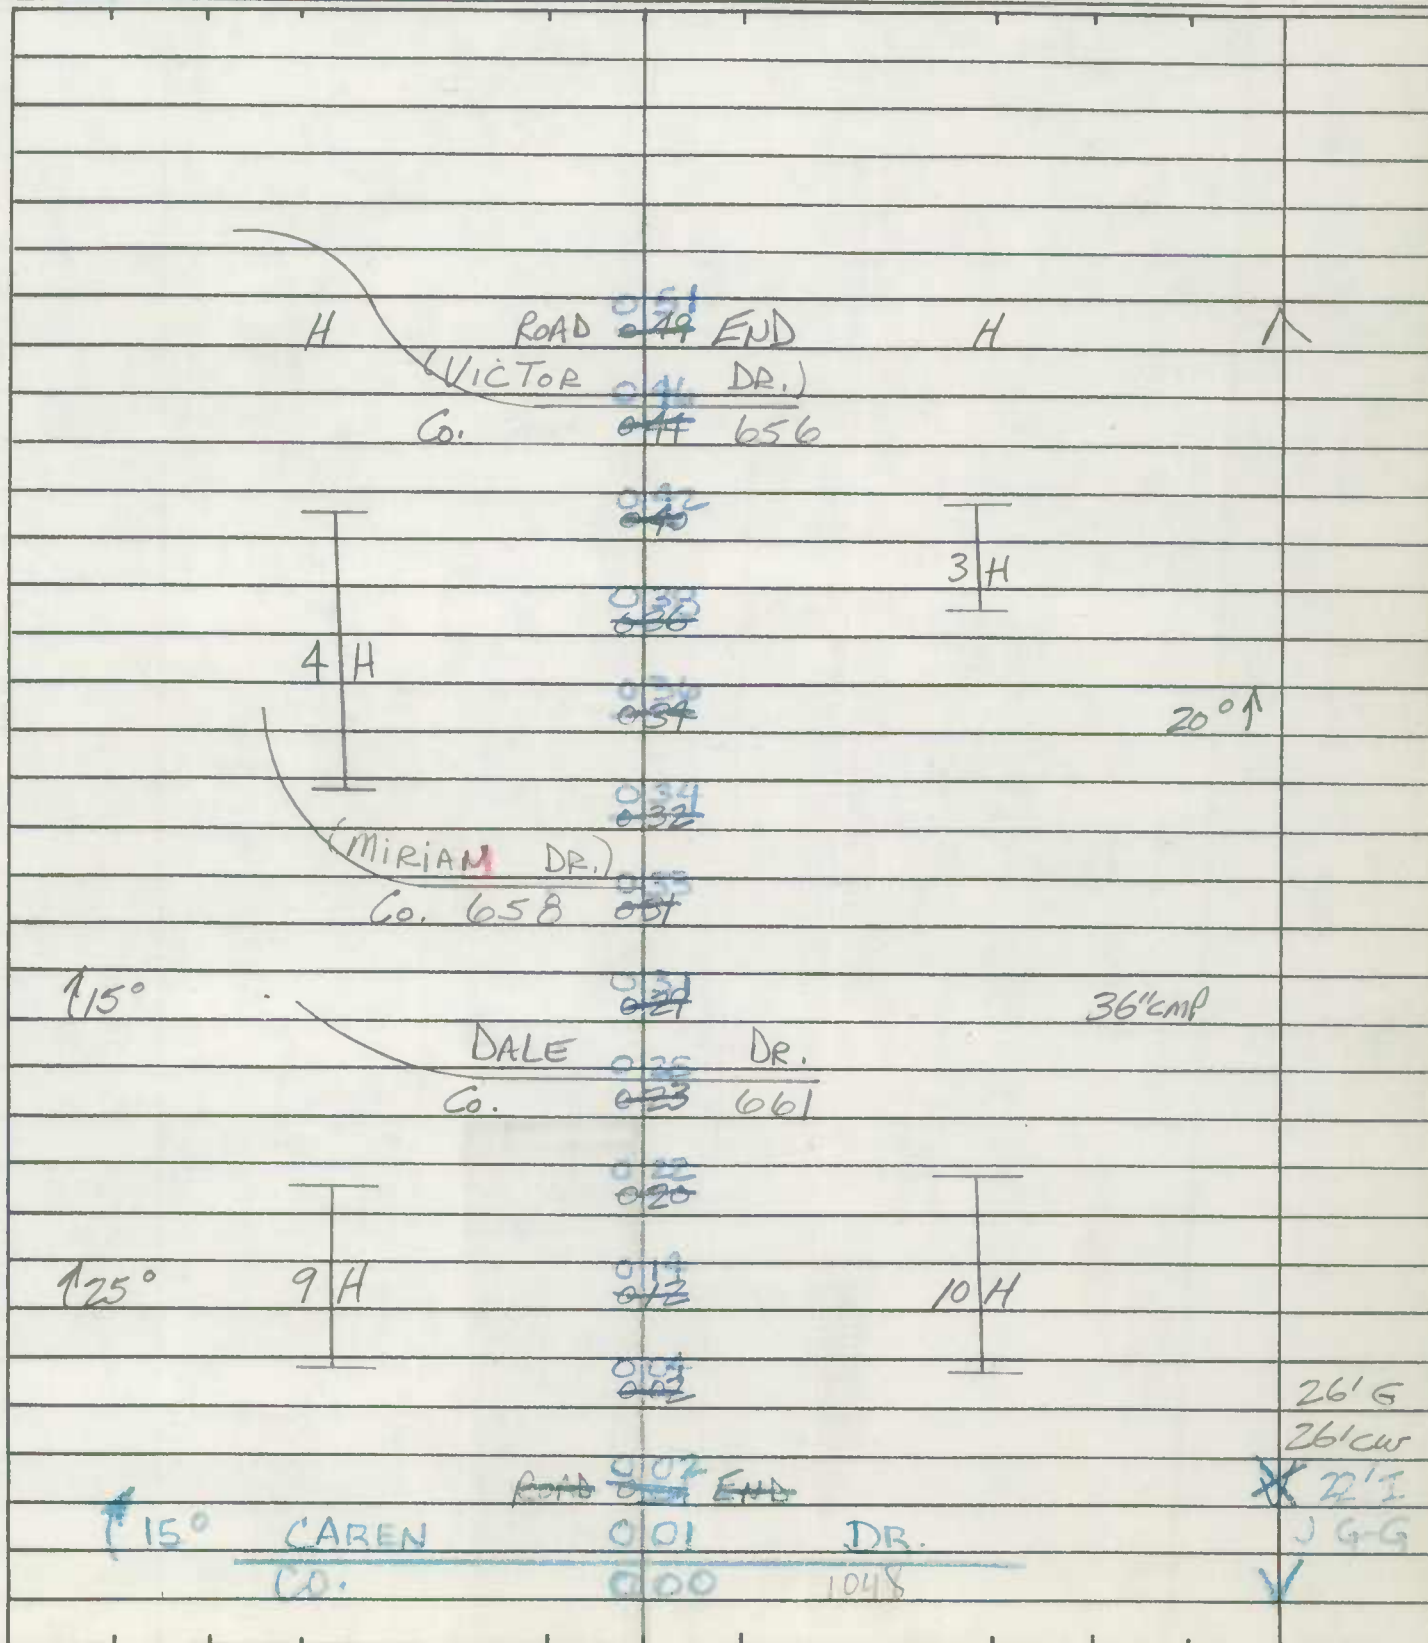 0 51
H ROAD 0 49 END H
(VICTOR DR.)
0 46
Co. 0 44 656
0 42
0 40
3 H
0 39
0 36
4 H
0 36
0 34 20°↑
0 34
0 32
(MIRIAM DR.)
0 33
Co. 658 0 31
0 31
↑15° 0 29 36"CMP
DALE DR.
0 25
Co. 0 23 661
0 22
0 20
0 14
↑25° 9 H 0 12 10 H
0 04
0 02
26' G
26' CW
0 02
ROAD END 22' I
↑15° CAREN 0 01 DR. J G-G
CO. 0 00 1048